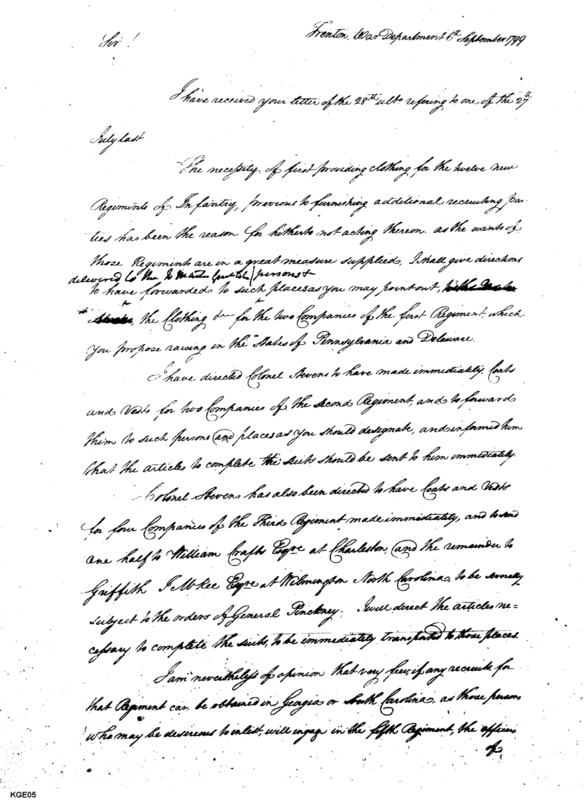 Trenton, War Department 6th September 1799
Sir!
I have received your letter of the 28th ulto refering to one of the 27th
July last
The necessity of first providing clothing for the twelve new
Regiments of Infantry, previous to furnishing additional recruiting par-
ties has been the reason for hitherto not acting thereon. as the wants of
those Regiments are in a great measure supplied, I shall give directions
delivered to the persons &
to have forwarded to such places as you may point out,
the Clothing &ca for the two Companies of the first Regiment, which
you propose raising in the States of Pennsylvania and Delaware.
I have directed Colonel Stevens to have made immediately Coats
and Vests for two Companies of the Second Regiment, and to forward
them to such persons and places as you should designate, and informed him
that the articles to complete the suits should be sent to him immediately
Colonel Stevens has also been directed to have Coats and Vests
for four Companies of the Third Regiment made immediately, and to send
one half to William Crafts Esqre at Charleston, and the remainder to
Griffith J. McRee Esqre at Wilmington North Carolina to be
subject to the orders of General Pinckney. I will direct the articles ne-
cessary to complete the suits, to be immediately transported to those places
I am nevertheless of opinion that very few, if any recruits for
that Regiment can be obtained in Georgia or South Carolina, as those persons
who may be desireous to enlist, will engage in the fifth Regiment, the officers
of
KGE05